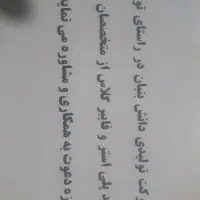 رکت تولیدی دانش بنیان در راستای تو
د پلی استر و فایبر گلاس از متخصصان
زه دعوت به همکاری و مشاوره می نمای